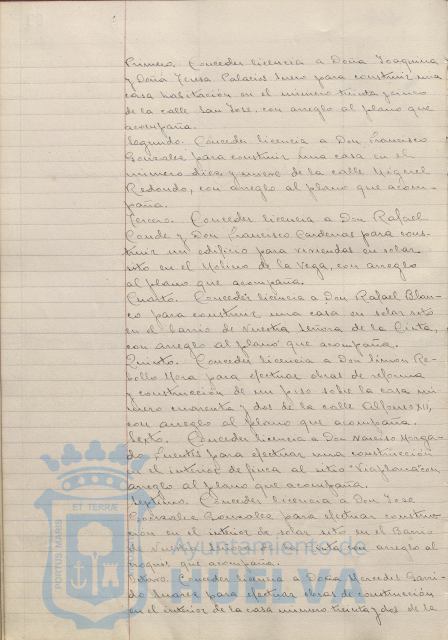 Primero. Conceder licencia a Doña Joaquina
y Doña Teresa Palacios Suero para construir una
casa habitación en el número treinta y cinco
de la calle San José, con arreglo al plano que
acompaña.
Segundo. Conceder licencia a Don Francisco
González para construir una casa en el
número diez y nueve de la calle Miguel
Redondo, con arreglo al plano que acom-
paña.
Tercero. Conceder licencia a Don Rafael
Conde y Don Francisco Cardenas para cons-
truir un edificio para viviendas en solar
sito en el Molino de la Vega, con arreglo
al plano que acompaña.
Cuarto. Conceder licencia a Don Rafael Blan-
co para construir una casa en solar sito
en el barrio de Nuestra Señora de la Cinta,
con arreglo al plano que acompaña.
Quinto. Conceder licencia a Don Simon Re-
bollo Mora para efectuar obras de reforma
y construcción de un piso sobre la casa nú-
mero cuarenta y dos de la calle Alfonso XII,
con arreglo al plano que acompaña.
Sexto. Conceder licencia a Don Narciso Morga-
do Fuentes para efectuar una construcción
en el interior de finca al sitio "Viaplana" con
arreglo al plano que acompaña.
Septimo. Conceder licencia a Don José
González González para efectuar construc-
ción en el interior de solar sito en el Barrio
de Nuestra Señora de la Cinta con arreglo al
croquis que acompaña.
Octavo. Conceder licencia a Doña Mercedes Garri-
do para efectuar obras de construcción
en el interior de la casa número treinta y dos de la
PORTUS MARIS
ET TERRÆ
Ayuntamiento de
HUELVA